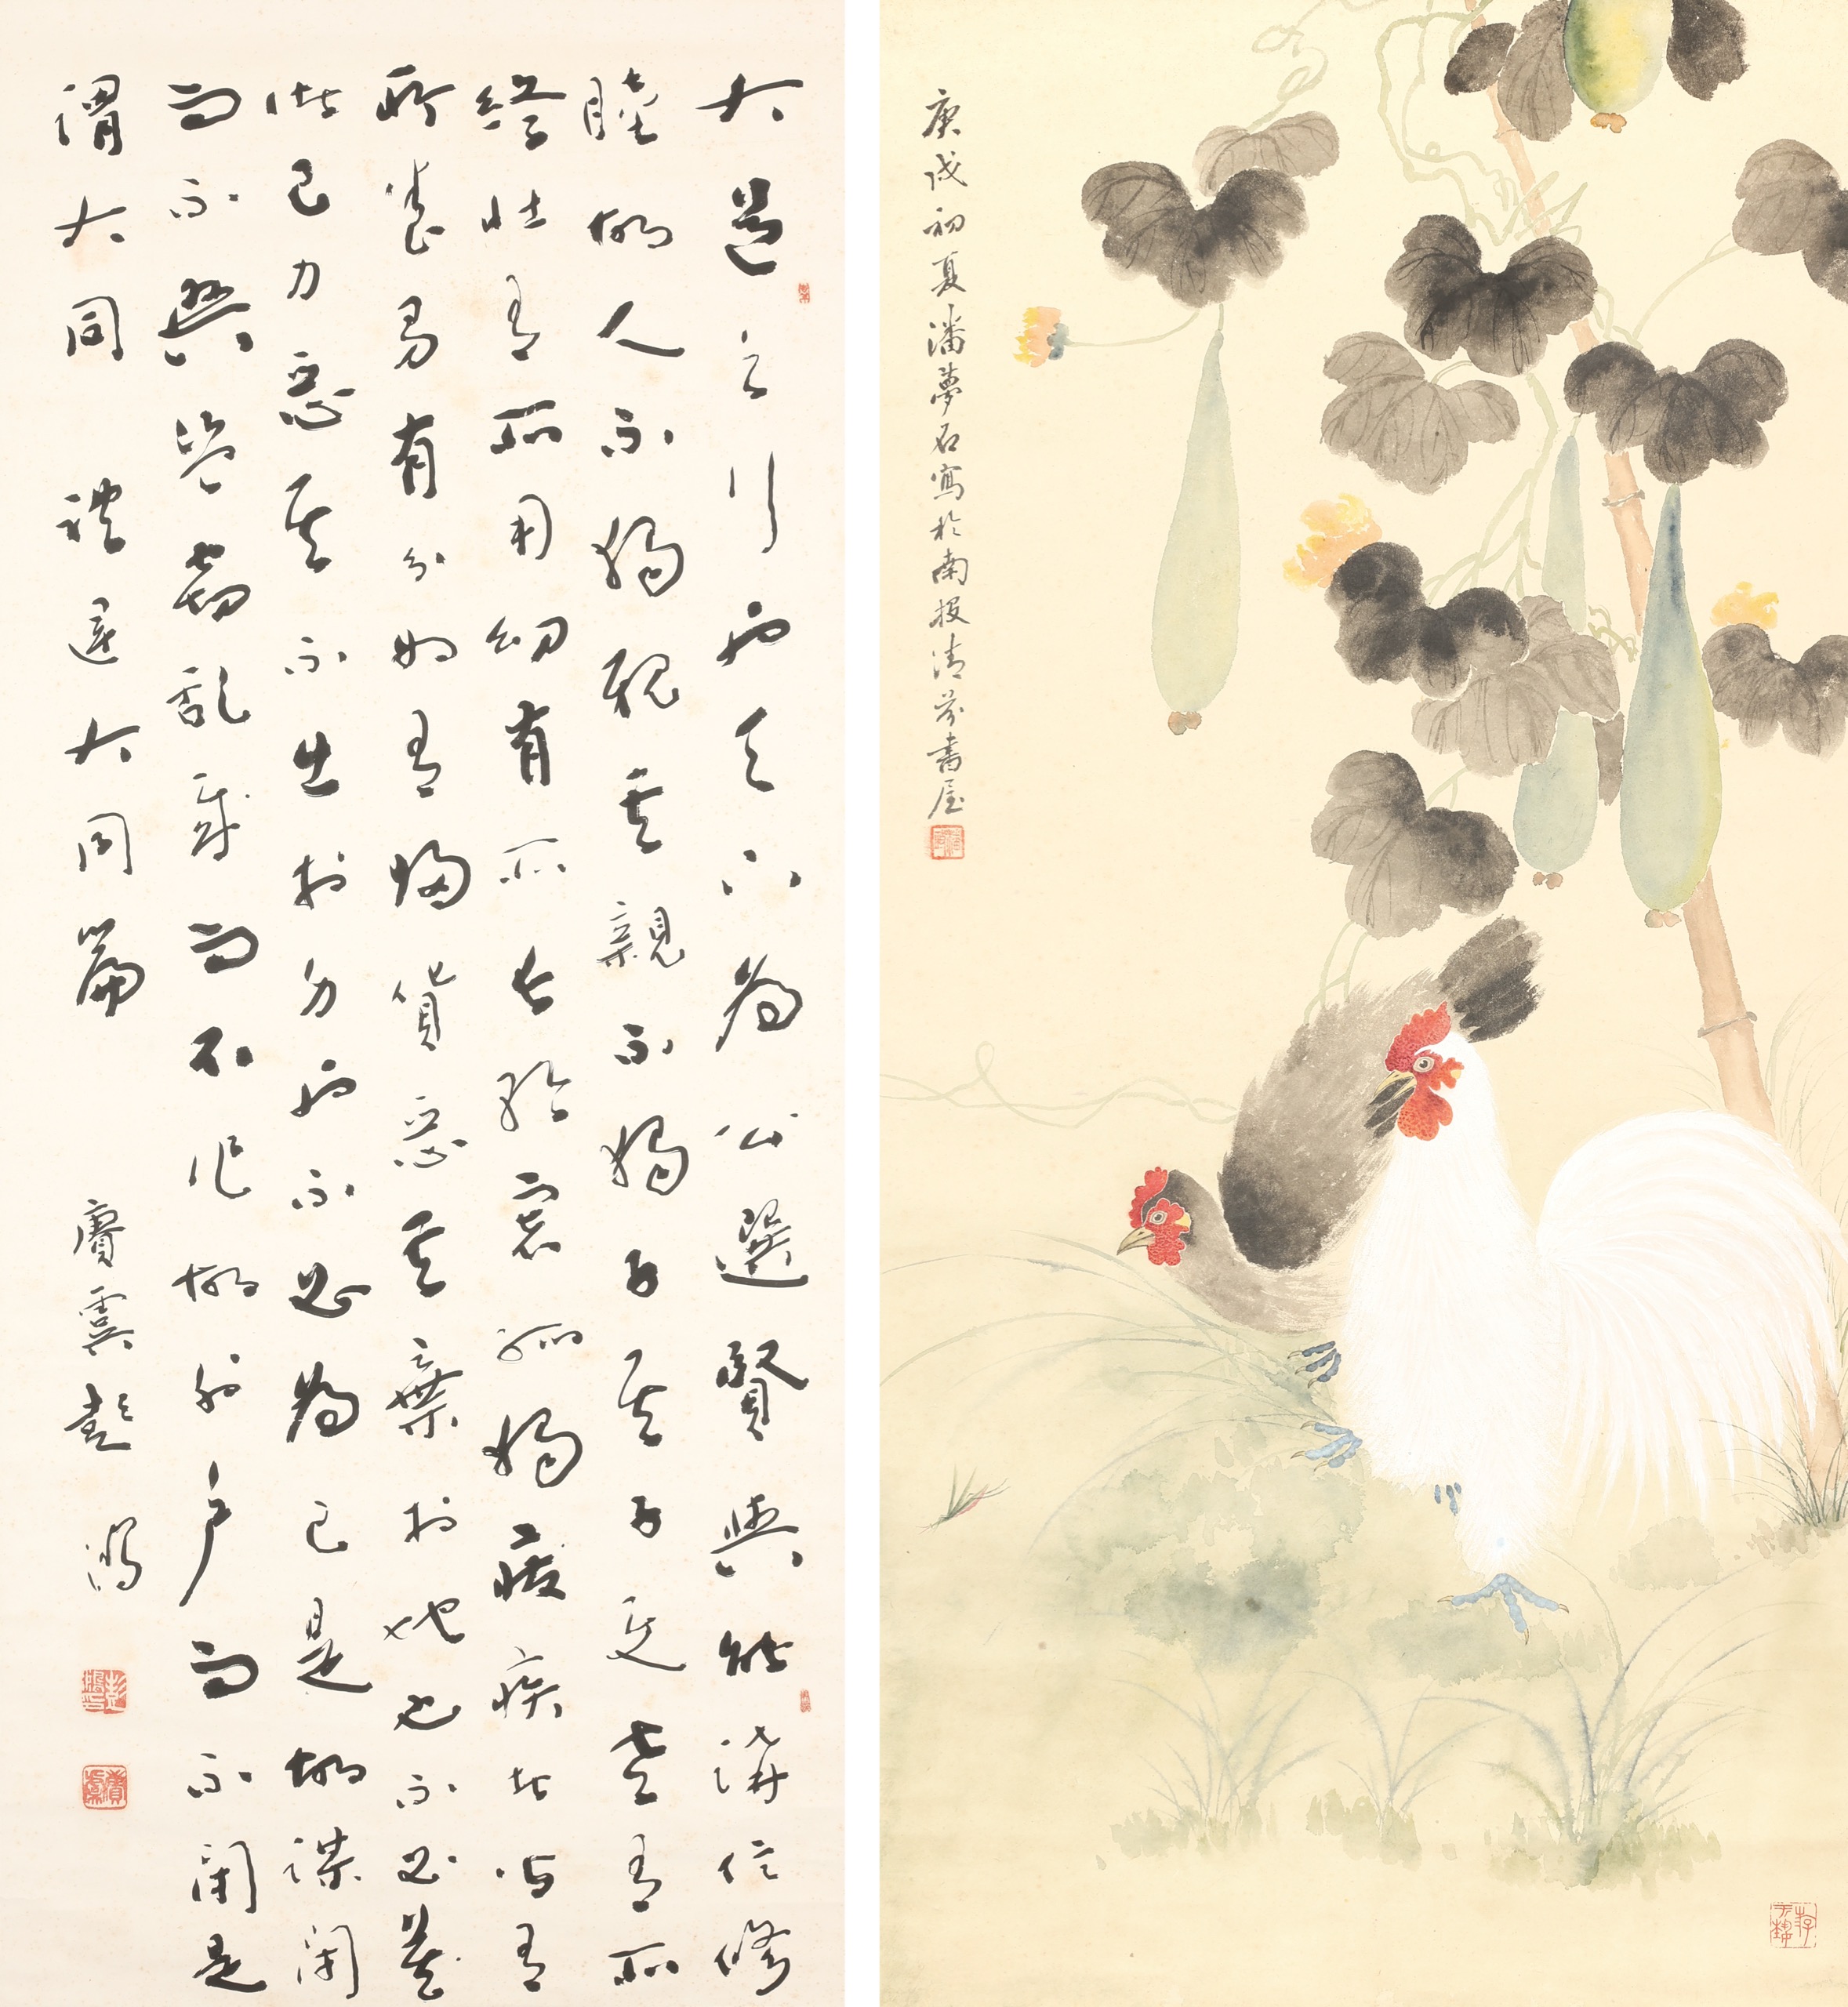 大道之行也天下為公選賢與能講信修
睦故人不獨親其親不獨子其子使老有所
終壯有所用幼有所長矜寡孤獨廢疾者皆有
所養男有分女有歸貨惡其棄於地也不必藏
於己力惡其不出於身也不必為己是故謀閉
而不興盜竊亂賊而不作故外戶而不閉是
謂大同 禮運大同篇 賡虞彭鴻
庚戌初夏潘夢石寫於南投清芬書屋